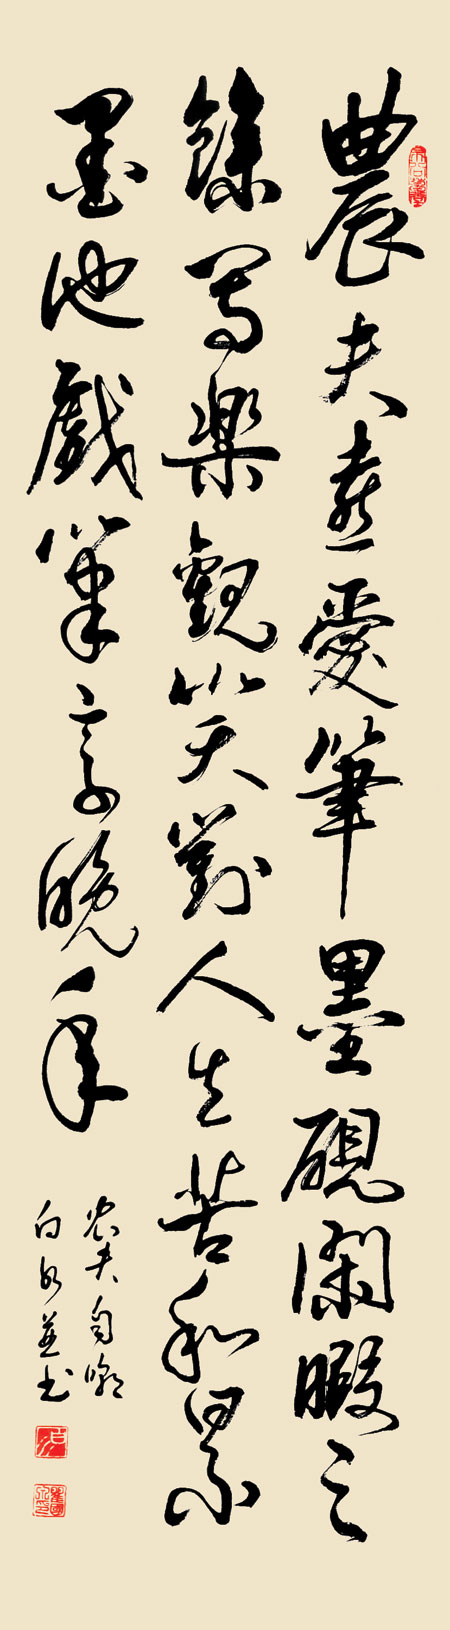 農夫喜愛筆墨硯閑暇之
餘寫樂觀笑對人生苦和累
墨池戲筆享晚年
农夫自嘲
白水並书